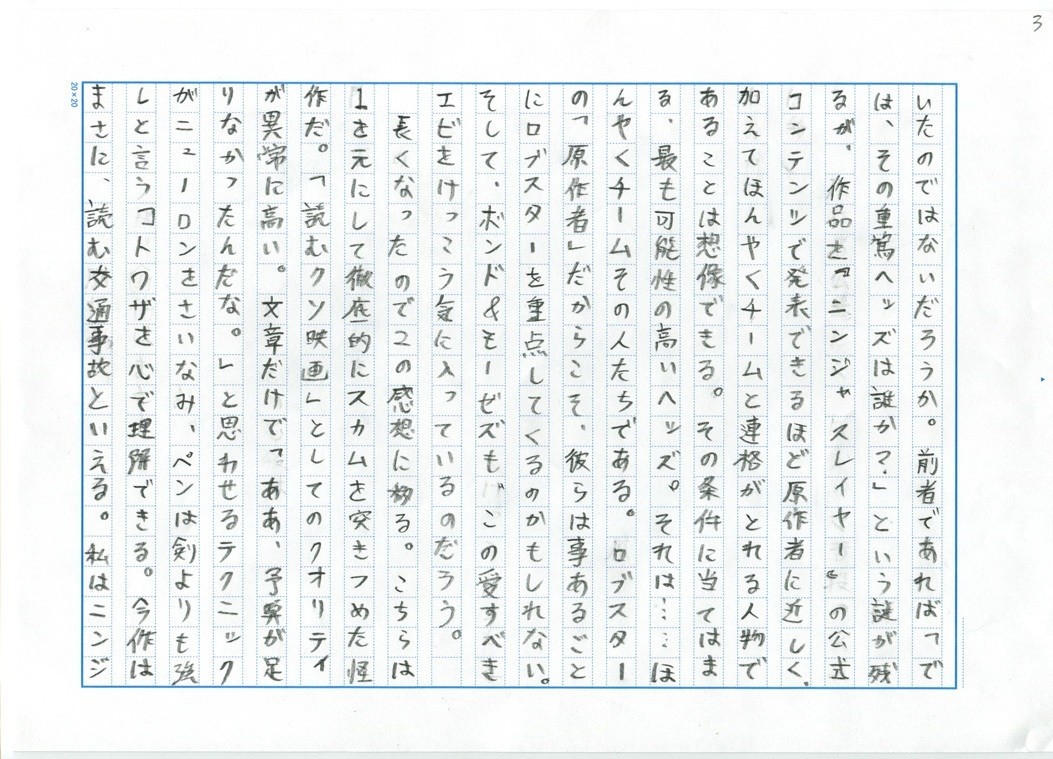 3
いたのではないだろうか。前者であれば「で
は、その重篤ヘッズは誰か？」という謎が残
るが、作品を『ニンジャスレイヤー』の公式
コンテンツで発表できるほど原作者に近しく、
加えてほんやくチームと連絡がとれる人物で
あることは想像できる。その条件に当てはま
る、最も可能性の高いヘッズ。それは……ほ
んやくチームその人たちである。ロブスター
の「原作者」だからこそ、彼らは事あるごと
にロブスターを重点してくるのかもしれない。
そして、ボンド＆モーゼズもこの愛すべき
エビをけっこう気に入っているのだろう。
長くなったので2の感想に移る。こちらは
1を元にして徹底的にスカムを突きつめた怪
作だ。「読むクソ映画」としてのクオリティ
が異常に高い。文章だけで「ああ、予算が足
りなかったんだな。」と思わせるテクニック
がニューロンをさいなみ、ペンは剣よりも強
しと言うコトワザを心で理解できる。今作は
まさに、読む交通事故といえる。私はニンジ
20×20